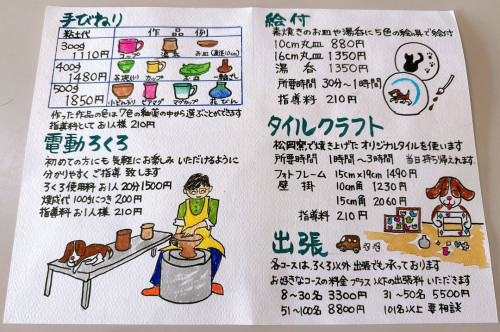 手びねり
粘土代 作品例
300g
1110円 コップ 湯呑 お皿(直径10cm)
400g
1480円 茶碗 カップ 一輪ざし
500g
1850円 小どんぶり ビアマグ マグカップ 花びん
作った作品の色は7色の釉薬の中から選ぶことができます
指導料としてお1人様210円
電動ろくろ
初めての方にも気軽にお楽しみいただけるように
分かりやすくご指導致します
ろくろ使用料お1人20分1500円
焼成代100gにつき200円
指導料お1人様210円
絵付
素焼きのお皿や湯呑に5色の絵具で絵付
10cm丸皿 880円
16cm丸皿 1350円
湯呑 1350円
所要時間30分~1時間
指導料210円
タイルクラフト
松岡窯で焼き上げたオリジナルタイルを使います
所要時間 1時間~3時間 当日持ち帰れます
フォトフレーム 15cm×19cm 1490円
壁掛 10cm角 1230円
15cm角 2060円
指導料210円
出張
各コースは、ろくろ以外出張でも承っております
お好きなコースの料金プラス以下の出張料いただきます
8~30名 3300円 31~50名 5500円
51~100名 8800円 101名以上 要相談